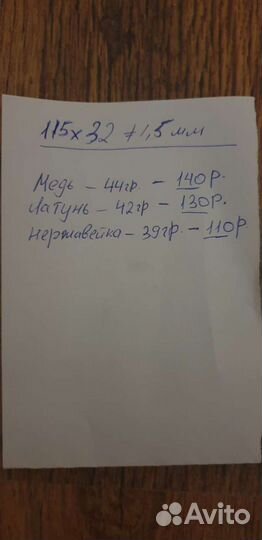 115х32 ≠1,5мм
Медь – 44гр. – 140р.
Латунь – 42гр – 130р.
нержавейка – 39гр. – 110р
Avito